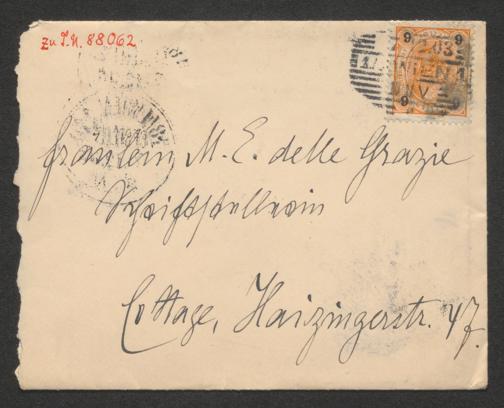 zu I.N. 88062
9 9
03
WIEN 1
V
9 9
Fräulein M. E. delle Grazie
Schriftstellerin
Cottage, Haizingerstr. 47.